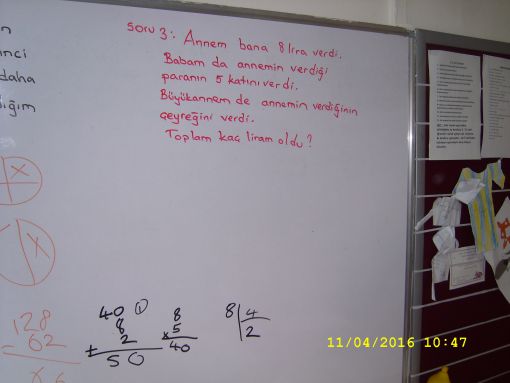 n
inci
daha
dığım
Soru 3: Annem bana 8 lira verdi.
Babam da annemin verdiği
paranın 5 katını verdi.
Büyükannem de annemin verdiğinin
çeyreğini verdi.
Toplam kaç liram oldu?
x
x
128
- 62
40 1
8
2
+
50
8
x 5
40
8 4
2
11/04/2016 10:47